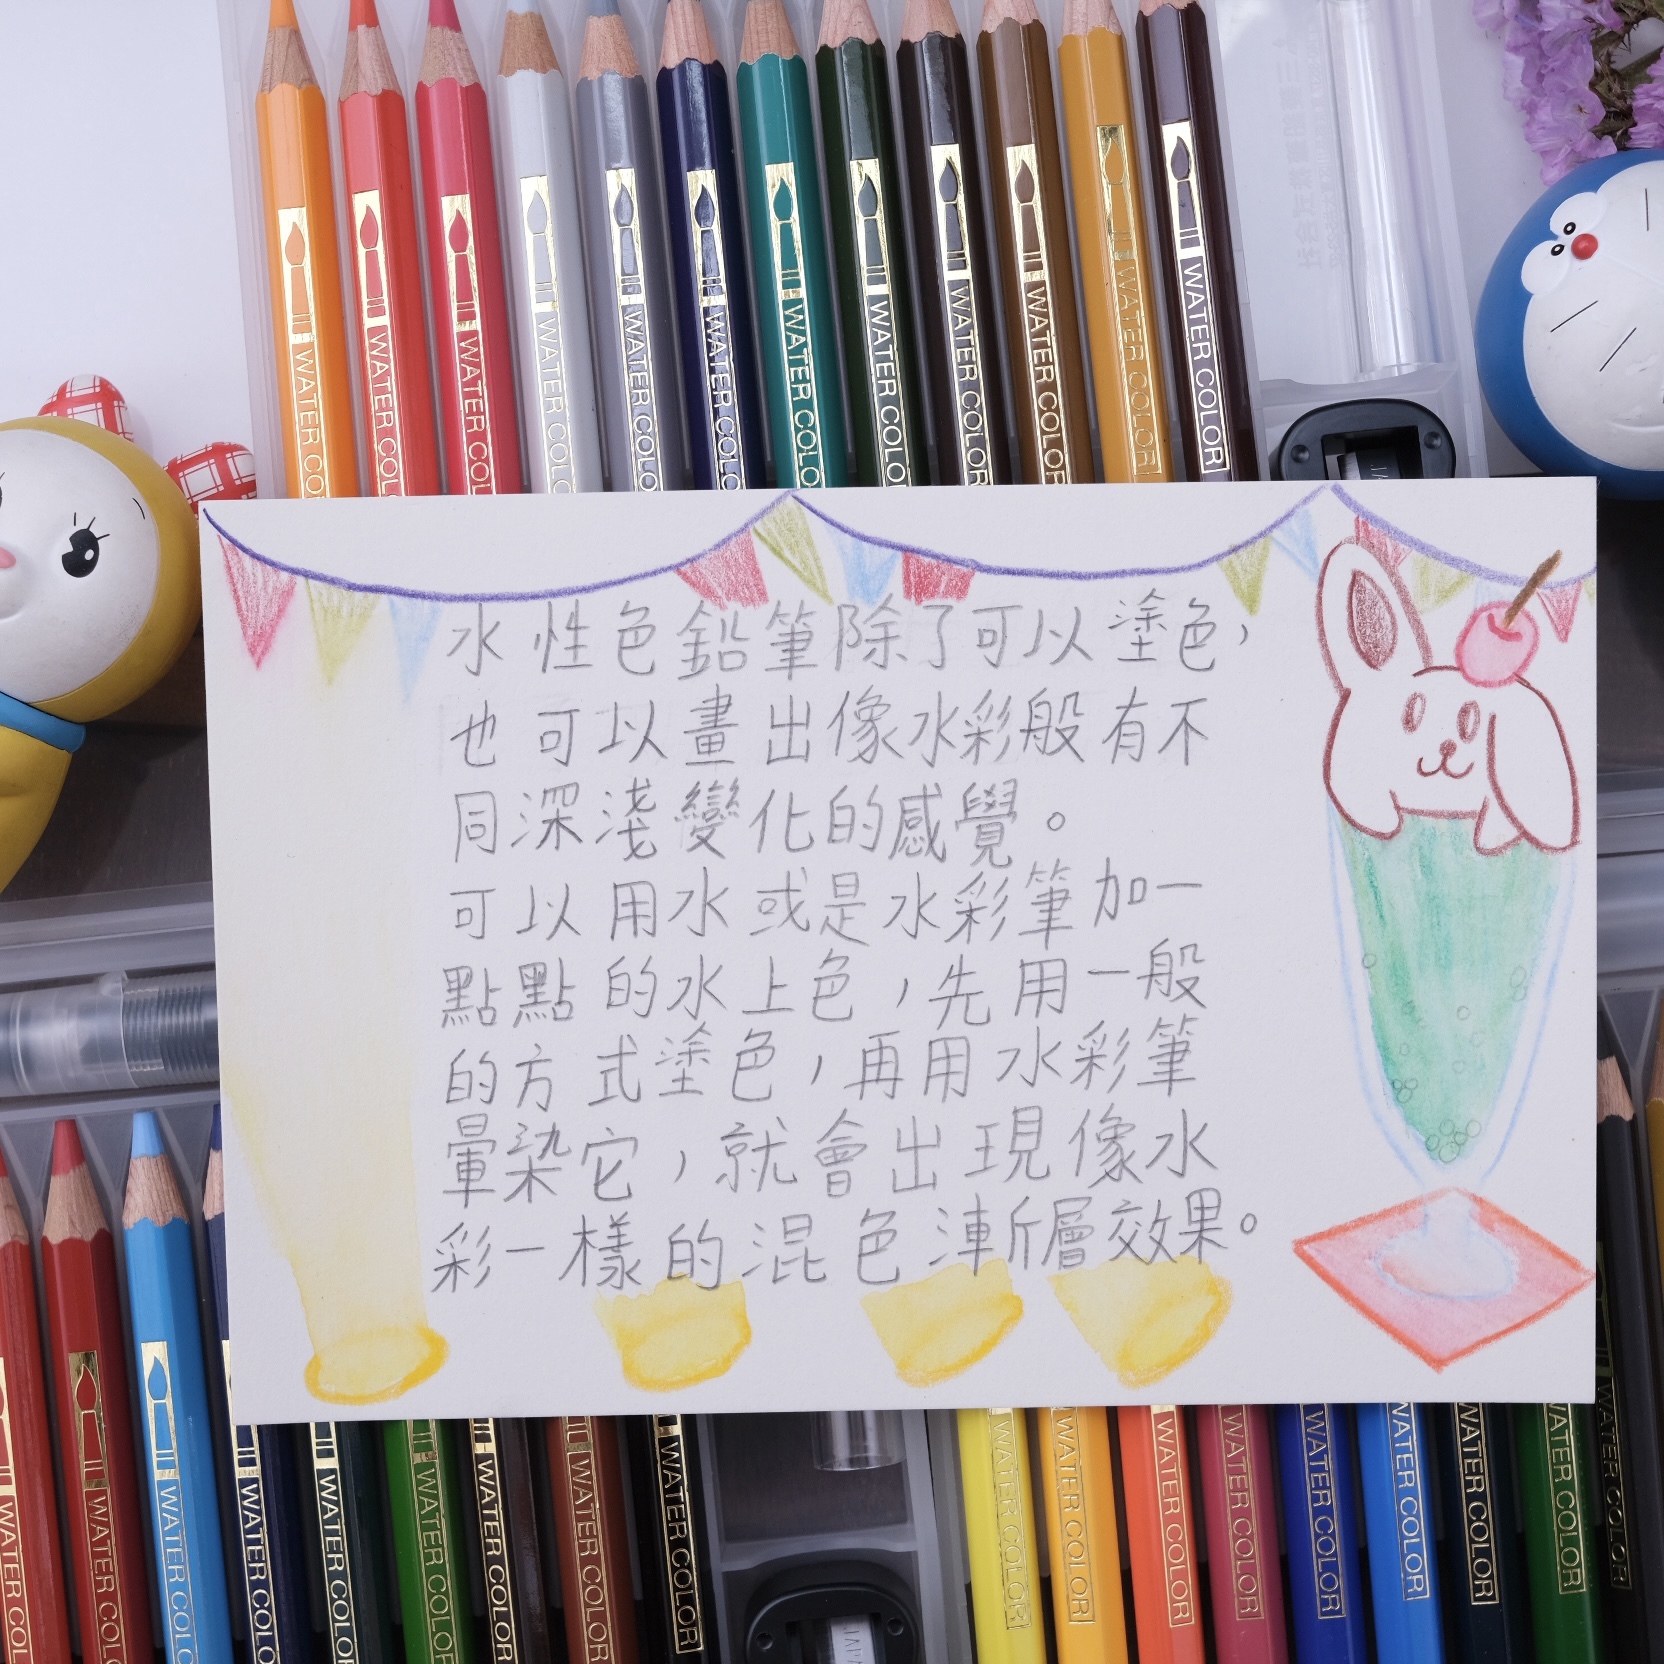 WATER CO
WATER COL
WATER COL
WATER COL
WATER COLO
WATER COLO
WATER COLO
WATER COLOR
WATER COLOR
WATER COLOR
WATER COLOR
WATER COLOR
水性色鉛筆除了可以塗色，
也可以畫出像水彩般有不
同深淺變化的感覺。
可以用水或是水彩筆加一
點點的水上色，先用一般
的方式塗色，再用水彩筆
暈染它，就會出現像水
彩一樣的混色漸層效果。
WATER COLO
WATER COLOR
WATER COLOR
WATER COLO
WATER COLOR
WATER COLOR
WATER COLOR
WATER COLOR
WATER COLOR
WATER COLOR
WATER COLOR
WATER COLOR
WATER COLOR
WATER COLOR
WATER COLOR
WATER COLOR
WATER COLOR
COLOR